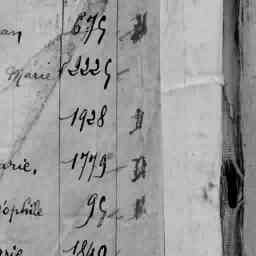 an 675 "
Marie 2225
1928 "
arie. 1779 "
éophile 95 "
arie 1840